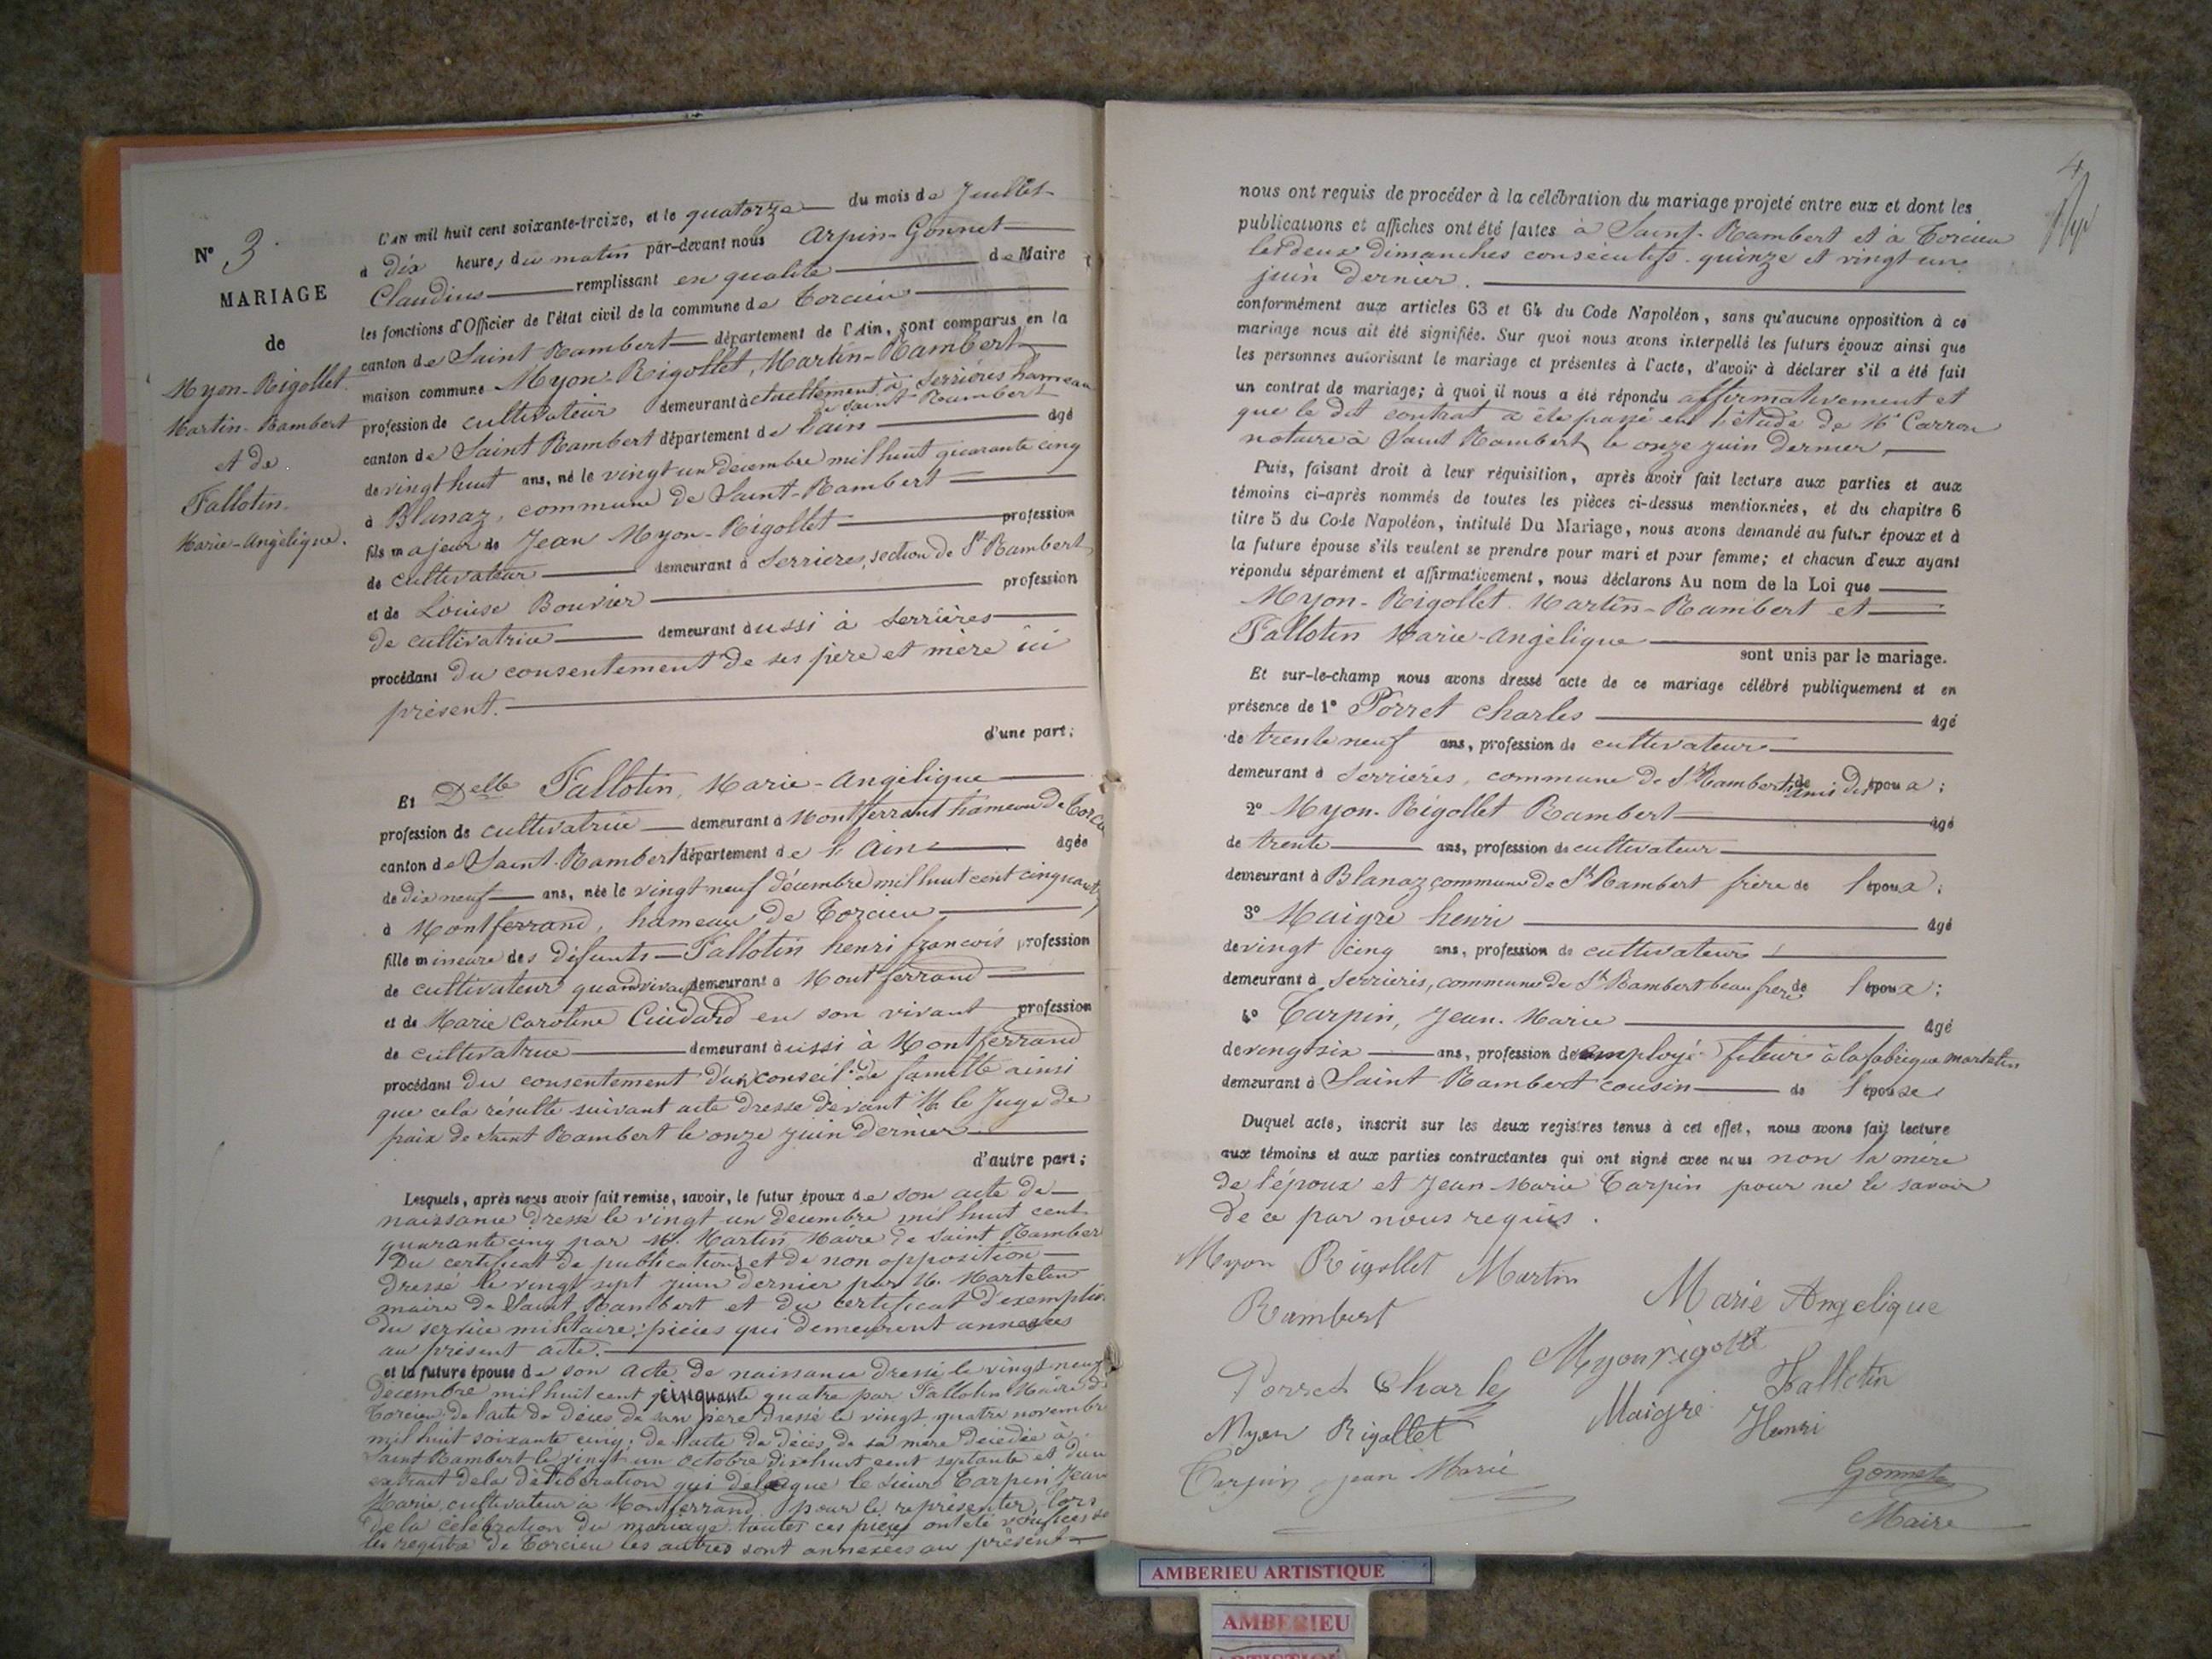 N° 3
MARIAGE
de
Myon-Rigollet
Martin-Rambert
et de
Fallotin
Marie-Angélique.
L'AN mil huit cent soixante-treize, et le quatorze du mois de Juillet
à dix heures du matin par-devant nous Arpin-Gonnet
Claudius remplissant en qualité de Maire
les fonctions d'Officier de l'état civil de la commune de Torcieu
canton de Saint Rambert département de l'Ain, sont comparus en la
maison commune Myon-Rigollet, Martin-Rambert
profession de cultivateur demeurant actuellement à Serrières hameau
de saint Rambert
canton de Saint Rambert département de l'ain âgé
de vingt huit ans, né le vingt un décembre mil huit quarante cinq
à Blanaz, commune de Saint-Rambert
fils majeur de Jean Myon-Rigollet profession
de cultivateur demeurant à Serrières, section de St Rambert
et de Louise Bouvier profession
de cultivatrice demeurant aussi à Serrières
procédant du consentement de ses père et mère ici
présent.
d'une part;
Et Delle Fallotin, Marie-Angélique
profession de cultivatrice demeurant à Montferrant hameau de Torcieu
canton de Saint-Rambert département de l'Ain âgée
de dix neuf ans, née le vingt neuf décembre mil huit cent cinquante
à Montferrand, hameau de Torcieu
fille mineure des défunts Fallotin henri francois profession
de cultivateur quand vivait demeurant à Montferrand
et de Marie Caroline Cuidard en son vivant profession
de cultivatrice demeurant aussi à Montferrand
procédant du consentement d'un conseil de famille ainsi
que cela résulte suivant acte dressé devant M. le Juge de
paix de Saint Rambert le onze juin dernier
d'autre part;
Lesquels, après nous avoir fait remise, savoir, le futur époux de son acte de
naissance dressé le vingt un décembre mil huit cent
quarante cinq par M. Martin Maire de Saint Rambert
Du certificat de publications et de non opposition
dressé le vingt sept juin dernier par M. Martelin
maire de Saint Rambert et du certificat d'exemption
du service militaire; pièces qui demeurent annexées
au présent acte.
et la future épouse de son acte de naissance dressé le vingt neuf
décembre mil huit cent cinquante quatre par Fallotin Maire de
Torcieu de l'acte de décès de son père dressé le vingt quatre novembre
mil huit soixante cinq; de l'acte de décès de sa mère décédée à
Saint Rambert le vingt un octobre dix huit cent septante et d'un
extrait de la délibération qui délègue le sieur Tarpin Jean
Marie cultivateur à Montferrand pour le représenter lors
de la célébration du mariage toutes ces pièces ont été
les registre de Torcieu les autres sont annexées au présent
4
nous ont requis de procéder à la célébration du mariage projeté entre eux et dont les
publications et affiches ont été faites à Saint-Rambert et à Torcieu
les deux dimanches consécutifs quinze et vingt un
juin dernier.
conformément aux articles 63 et 64 du Code Napoléon, sans qu'aucune opposition à ce
mariage nous ait été signifiée. Sur quoi nous avons interpellé les futurs époux ainsi que
les personnes autorisant le mariage et présentes à l'acte, d'avoir à déclarer s'il a été fait
un contrat de mariage; à quoi il nous a été répondu affirmativement et
que le dit contrat a été passé en l'étude de Me Carron
notaire à Saint Rambert le onze juin dernier,
Puis, faisant droit à leur réquisition, après avoir fait lecture aux parties et aux
témoins ci-après nommés de toutes les pièces ci-dessus mentionnées, et du chapitre 6
titre 5 du Code Napoléon, intitulé Du Mariage, nous avons demandé au futur époux et à
la future épouse s'ils veulent se prendre pour mari et pour femme; et chacun d'eux ayant
répondu séparément et affirmativement, nous déclarons Au nom de la Loi que
Myon-Rigollet Martin-Rambert et
Fallotin Marie-Angélique
sont unis par le mariage.
Et sur-le-champ nous avons dressé acte de ce mariage célébré publiquement et en
présence de 1° Porret Charles âgé
de trente neuf ans, profession de cultivateur
demeurant à Serrières, commune de St Rambert amis des époux;
2° Myon-Rigollet Rambert âgé
de trente ans, profession de cultivateur
demeurant à Blanaz commune de St Rambert frère de l'époux;
3° Maigre henri âgé
de vingt cinq ans, profession de cultivateur
demeurant à Serrières, commune de St Rambert beau frère de l'époux;
4° Tarpin, Jean-Marie âgé
de vingt six ans, profession de employé fileur à la fabrique martelin
demeurant à Saint Rambert cousin de l'épouse
Duquel acte, inscrit sur les deux registres tenus à cet effet, nous avons fait lecture
aux témoins et aux parties contractantes qui ont signé avec nous non la mère
de l'époux et Jean-Marie Tarpin pour ne le savoir
de ce par nous requis.
Myon Rigollet Martin
Rambert
Marie Angelique
Fallotin
Myon rigollet
Porret Charles
Maigre Henri
Myon Rigollet
Tarpin Jean Marie
Gonnet
Maire
AMBERIEU ARTISTIQUE
AMBERIEU
ARTISTIQUE